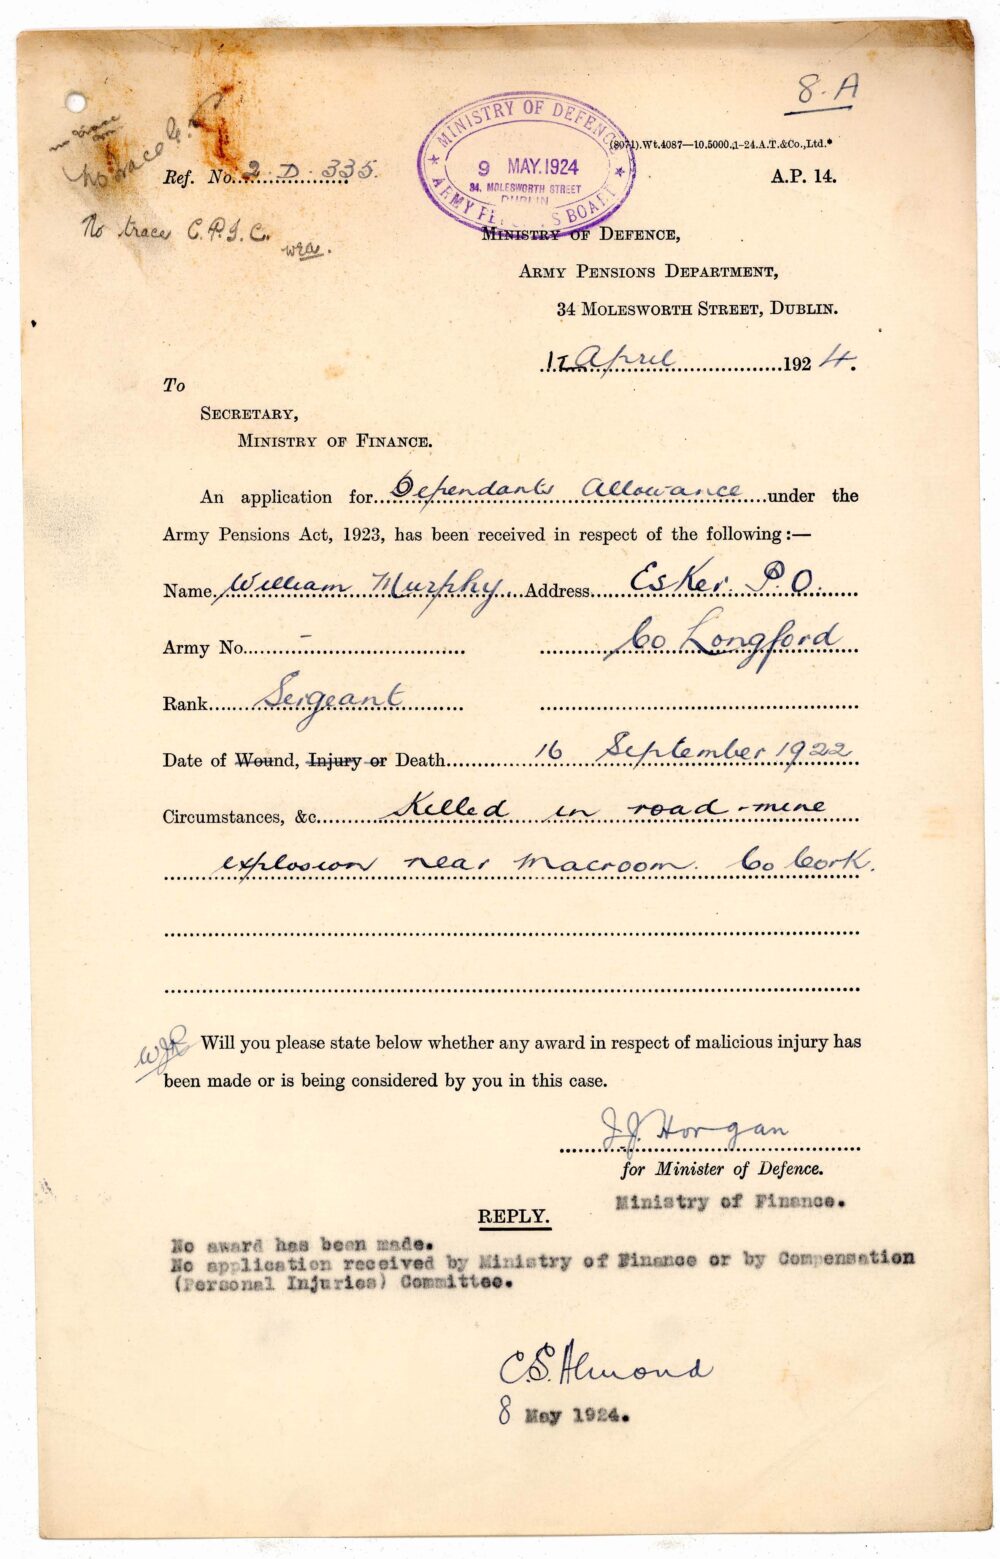 8.A
MINISTRY OF DEFENCE
9 MAY.1924
34, MOLESWORTH STREET
DUBLIN
ARMY PE S BOARD
(8071).Wt.4087—10.5000.1-24.A.T.&Co.,Ltd.*
no trace
Ref. No. 2.D.335.
A.P. 14.
No trace C.P.I.C.
MINISTRY OF DEFENCE,
ARMY PENSIONS DEPARTMENT,
34 MOLESWORTH STREET, DUBLIN.
April 1924.
To
SECRETARY,
MINISTRY OF FINANCE.
An application for Dependants Allowance under the
Army Pensions Act, 1923, has been received in respect of the following:—
Name William Murphy. Address Esker P.O.
Army No. – Co Longford
Rank Sergeant
Date of Wound, Injury or Death 16 September 1922
Circumstances, &c. Killed in road-mine
explosion near Macroom. Co Cork.
Will you please state below whether any award in respect of malicious injury has
been made or is being considered by you in this case.
J.J. Horgan
for Minister of Defence.
Ministry of Finance.
REPLY.
No award has been made.
No application received by Ministry of Finance or by Compensation
(Personal Injuries) Committee.
C.S. Almond
8 May 1924.